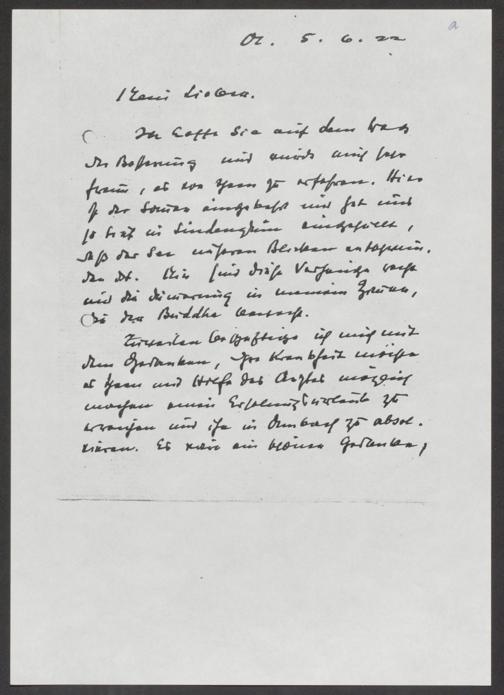 a
O. 5. 6. 22
Mein Lieber.
Ich hoffe Sie auf dem Wege
der Besserung und würde mich sehr
freuen, es von Ihnen zu erfahren. Hier
ist der Sommer eingekehrt und hat uns
so tief in Lindengrün eingehüllt,
daß der See unseren Blicken entschwun-
den ist. Mir sind diese
und die Dämmerung in meinem Zimmer,
die der Buddha bewacht.
Zuweilen beschäftige ich mich mit
dem Gedanken, Ihre Krankheit möchte
es Ihnen mit Hilfe des Arztes möglich
machen einen Erholungsurlaub zu
erreichen und ihn in zu absol-
vieren. Es wäre ein schöner Gedanke,